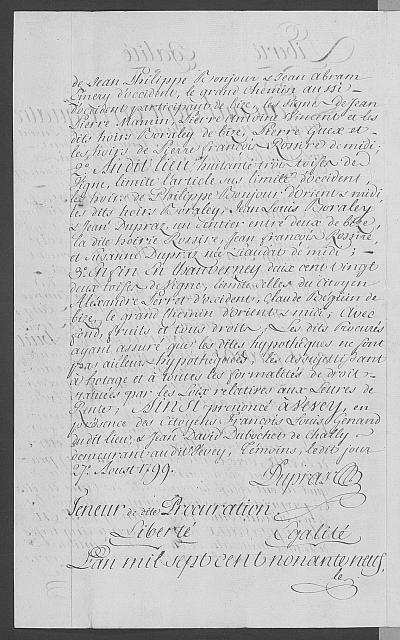 de Jean Philippe Bonjour, & Jean Abram
d'occident, le grand Chemin aussi
d'occident, participant de bize, les vignes de Jean
Pierre Mamin, Pierre Antoine Vincent et les
dits hoirs Boraley de bize, Pierre Guex et
les hoirs de Pierre François Rossire de midi;
2º. Audit lieu huitante trois toises de
Vigne, limite l'article sus limité d'occident,
les hoirs de Philippe Bonjour d'orient & midi,
les dits hoirs Boraley, Jean Louis Boraley
& Jean Dupraz, un Sentier entre deux de bize,
la dite hoirie Rossire, Jean François Rossire
et Susanne Dupraz née Liaudat de midi;
3º. Enfin En Chauderney deux cent vingt
deux toises de vigne, limite celles du Citoyen
Alexandre Perret d'occident, Claude Béguin de
bize, le grand chemin d'orient & midi; Avec
fond, fruits et tous droits; Les dits procurés
ayant assuré que les dites hypothèques ne sont
pas ailleurs hypothéquées; les assujettissant
à hotage et à toutes les formalités de droit
par les Loix relatives aux Lettres de
Rente; Ainsi prononcé à Vevey, en
présence des Citoyens François Louis Genand
dudit lieu, & Jean David Dubochet de Chailly
demeurant audit Vevey, témoins, le dit jour
27e. Aoust 1799.
Dupraz
Teneur de dite Procuration
Liberté Egalité
L'an mil sept cent nonante neuf,
le